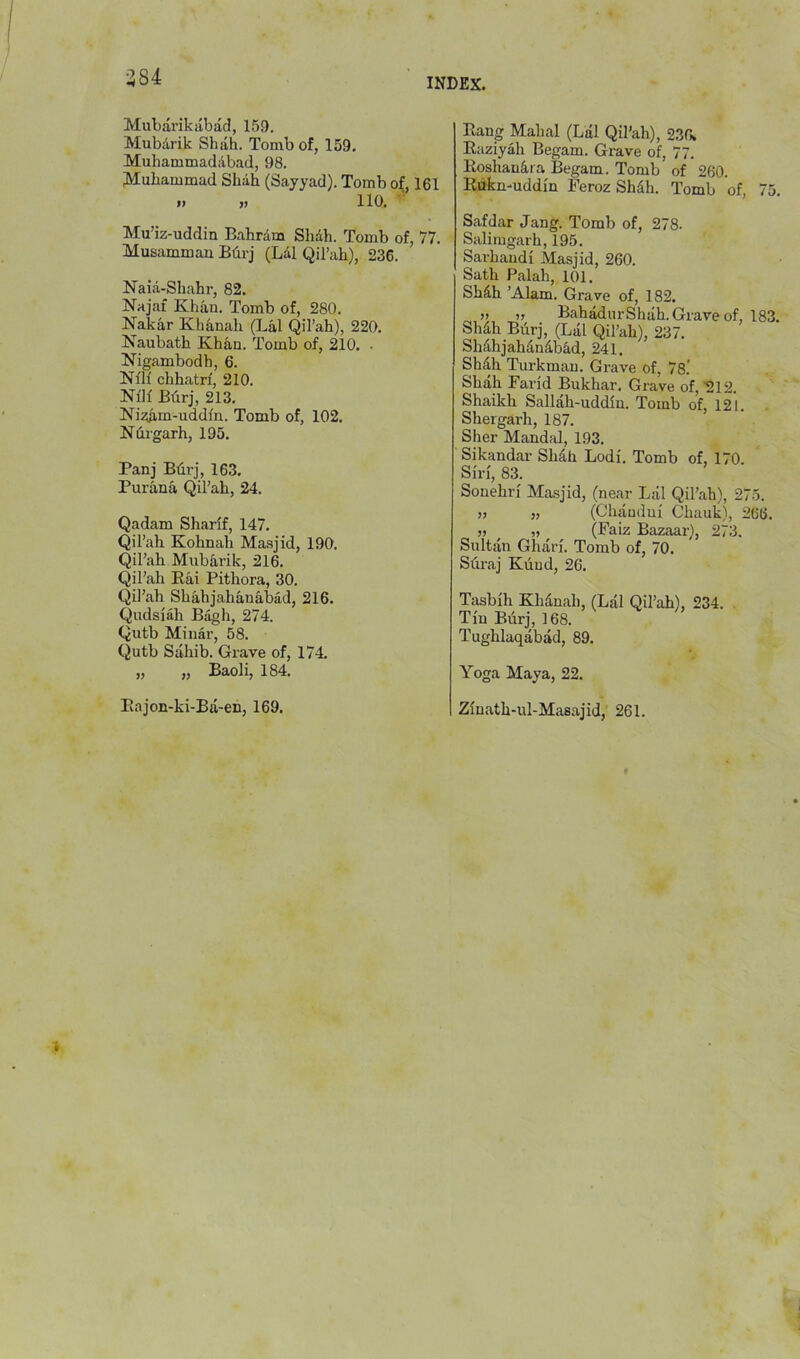 284
INDEX.
Mubárikábád, 159.
Mubárik Sháh. Tomb of, 159.
Muhammadábad, 98.
Muhammad Sháh (Sayyad). Tomb of, 161
„ „ 110.
Mu’iz-uddin Bahrám Sháh. Tomb of, 77.
Musamman Búrj (Lál Qil’ah), 236.
Naiá-Shahr, 82.
Najaf Khán. Tomb of, 280.
Nakár Khánah (Lál Qil’ah), 220.
Naubath Khán. Tomb of, 210.
Nigambodh, 6.
Nílí chhatrí, 210.
Nílí Búrj, 213.
Nizám-uddín. Tomb of, 102.
Núrgarh, 195.
Panj Búrj, 163.
Purána Qil’ah, 24.
Qadam Sharíf, 147.
Qil’ah Kohnah Masjid, 190.
Qil’ah Mubárik, 216.
Qil’ah Rái Pithora, 30.
Qil’ah Sháhjahánábád, 216.
Qudsíáh Bágh, 274.
Qutb Minár, 58.
Qutb Sáhib. Grave of, 174.
„ „ Baoli, 184.
Rajon-ki-Bá-en, 169.
Rang Mahal (Lál Qil’ah), 236.
Raziyáh Begam. Grave of, 77.
Roshanára Begam. Tomb of 260.
Rukn-uddín Feroz Sháh. Tomb of, 75.
Safdar Jang. Tomb of, 278.
Salimgarh, 195.
Sarhandí Masjid, 260.
Sath Palah, 101.
Sháh ’Alam. Grave of, 182.
„ „ BahádurSháh. Grave of, 183.
Sháh Búrj, (Lál Qil’ah), 237.
Sháhjahánábád, 241.
Sháh Turkman. Grave of, 78.
Sháh Faríd Bukhar. Grave of, 212.
Shaikh Salláh-uddín. Tomb of, 121.
Shergarh, 187.
Sher Mandal, 193.
Sikandar Sháh Lodí. Tomb of, 170.
Sírí, 83.
Sonehrí Masjid, (near Lál Qil’ah), 275.
„ „ (Chándní Chauk), 266.
„ „ (Faiz Bazaar), 273.
Sultán Ghárí. Tomb of, 70.
Súraj Kúnd, 26.
Tasbíh Khánah, (Lál Qil’ah), 234.
Tín Búrj, 168.
Tughlaqábád, 89.
Yoga Maya, 22.
Zínath-ul-Masajid, 261.